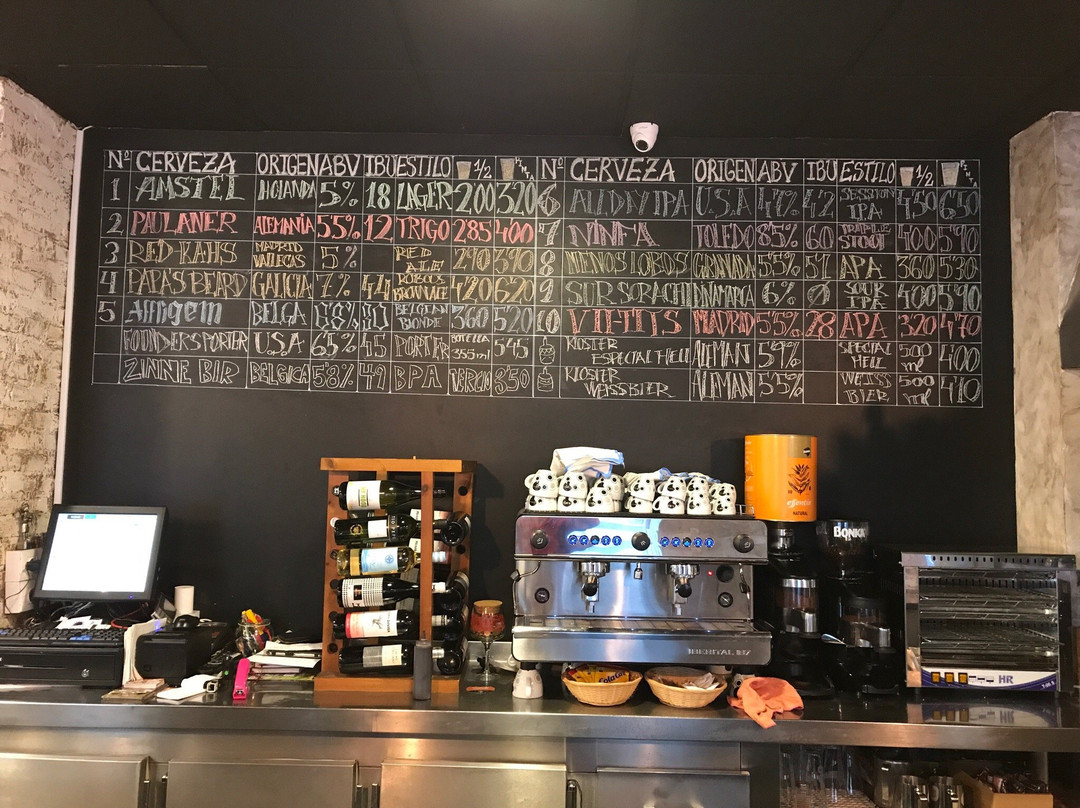 Nº CERVEZA ORIGEN ABV IBU ESTILO 1/2 PINTA
1 AMSTEL HOLANDA 5% 18 LAGER 200 320
2 PAULANER ALEMANIA 5'5% 12 TRIGO 285 400
3 RED-KAHS MADRID VALLECAS 5% RED ALE 290 390
4 PAPA'S BEARD GALICIA 7% 44 ROBUST BROWN ALE 420 620
5 Affligem BELGA 6'8% BELGIAN BLONDE 360 520
FOUNDER'S PORTER U.S.A 6'5% 45 PORTER BOTELLA 355ml 545
ZINNE BIR BELGICA 5'8% 49 BPA TERCIO 350
Nº CERVEZA ORIGEN ABV IBU ESTILO 1/2 PINTA
6 ALL DAY IPA U.S.A 4'7% 42 SESSION IPA 450 650
7 NINFA TOLEDO 8'5% 60 STOUT 400 590
8 MENOS LOBOS GRANADA 5'5% 51 APA 360 530
9 SUR SORACHI DINAMARCA 6% Ø SOUR IPA 400 590
10 VIITIS MADRID 5'5% 28 APA 320 470
KLOSTER ESPECIAL HELL ALEMAN 5'4% SPECIAL HELL 500 ml 400
KLOSTER WEISSBIER ALEMAN 5'5% WEISS BIER 500 ml 410
BONKA
NATURAL
IBERITAL IB7
ColaCao
HR